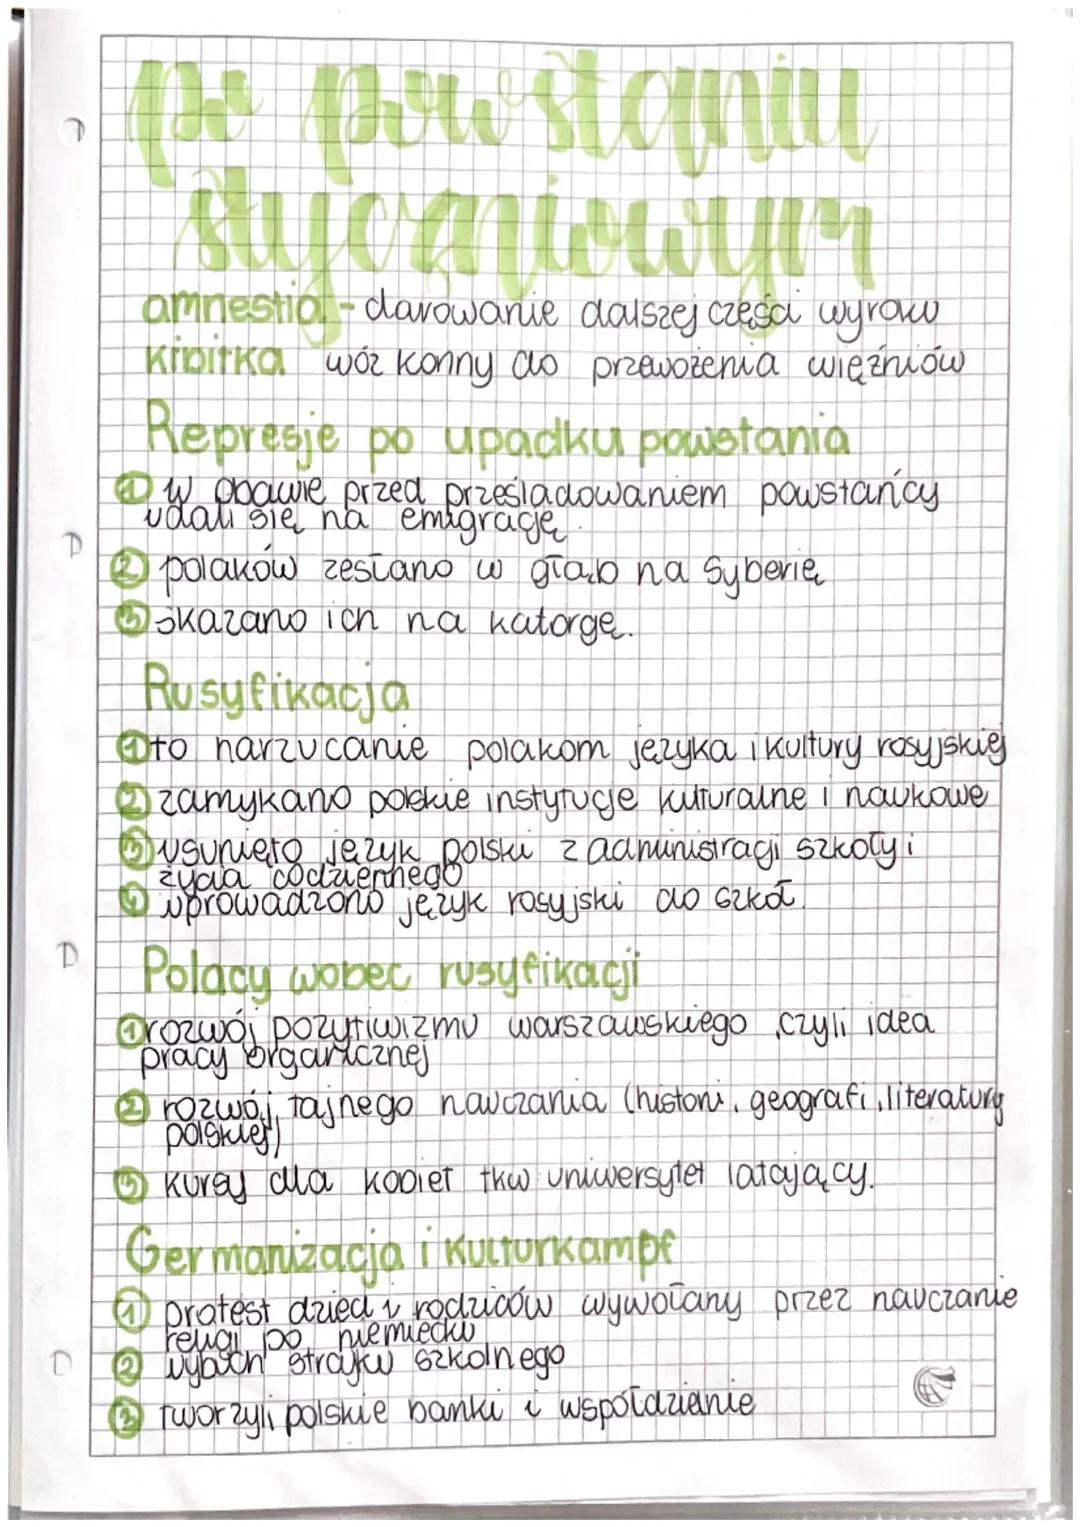 po powstaniu
styczniowym
amnestia - darowanie dalszej części wyroku
kibitka wóz konny do przewożenia więźniów
Represje po upadku powstania
① w obawie przed prześladowaniem powstańcy
udali się na emigrację.
② polaków zesłano w głąb na Syberię
③ skazano ich na katorgę.
Rusyfikacja
① to narzucanie polakom języka i kultury rosyjskiej
② zamykano polskie instytucje kulturalne i naukowe
③ usunięto język polski z administracji szkoły i
życia codziennego
④ wprowadzono język rosyjski do szkół.
Polacy wobec rusyfikacji
① rozwój pozytiwizmu warszawskiego, czyli idea
pracy organicznej
② rozwój tajnego nauczania (histori, geografi, literatury
polskiej)
③ kursy dla kobiet tkw uniwersytet latający.
Germanizacja i Kulturkampf
① protest dzieci i rodziców wywołany przez nauczanie
religi po niemiecku
② wybuch strajku szkolnego
③ tworzyli polskie banki i współdzianie